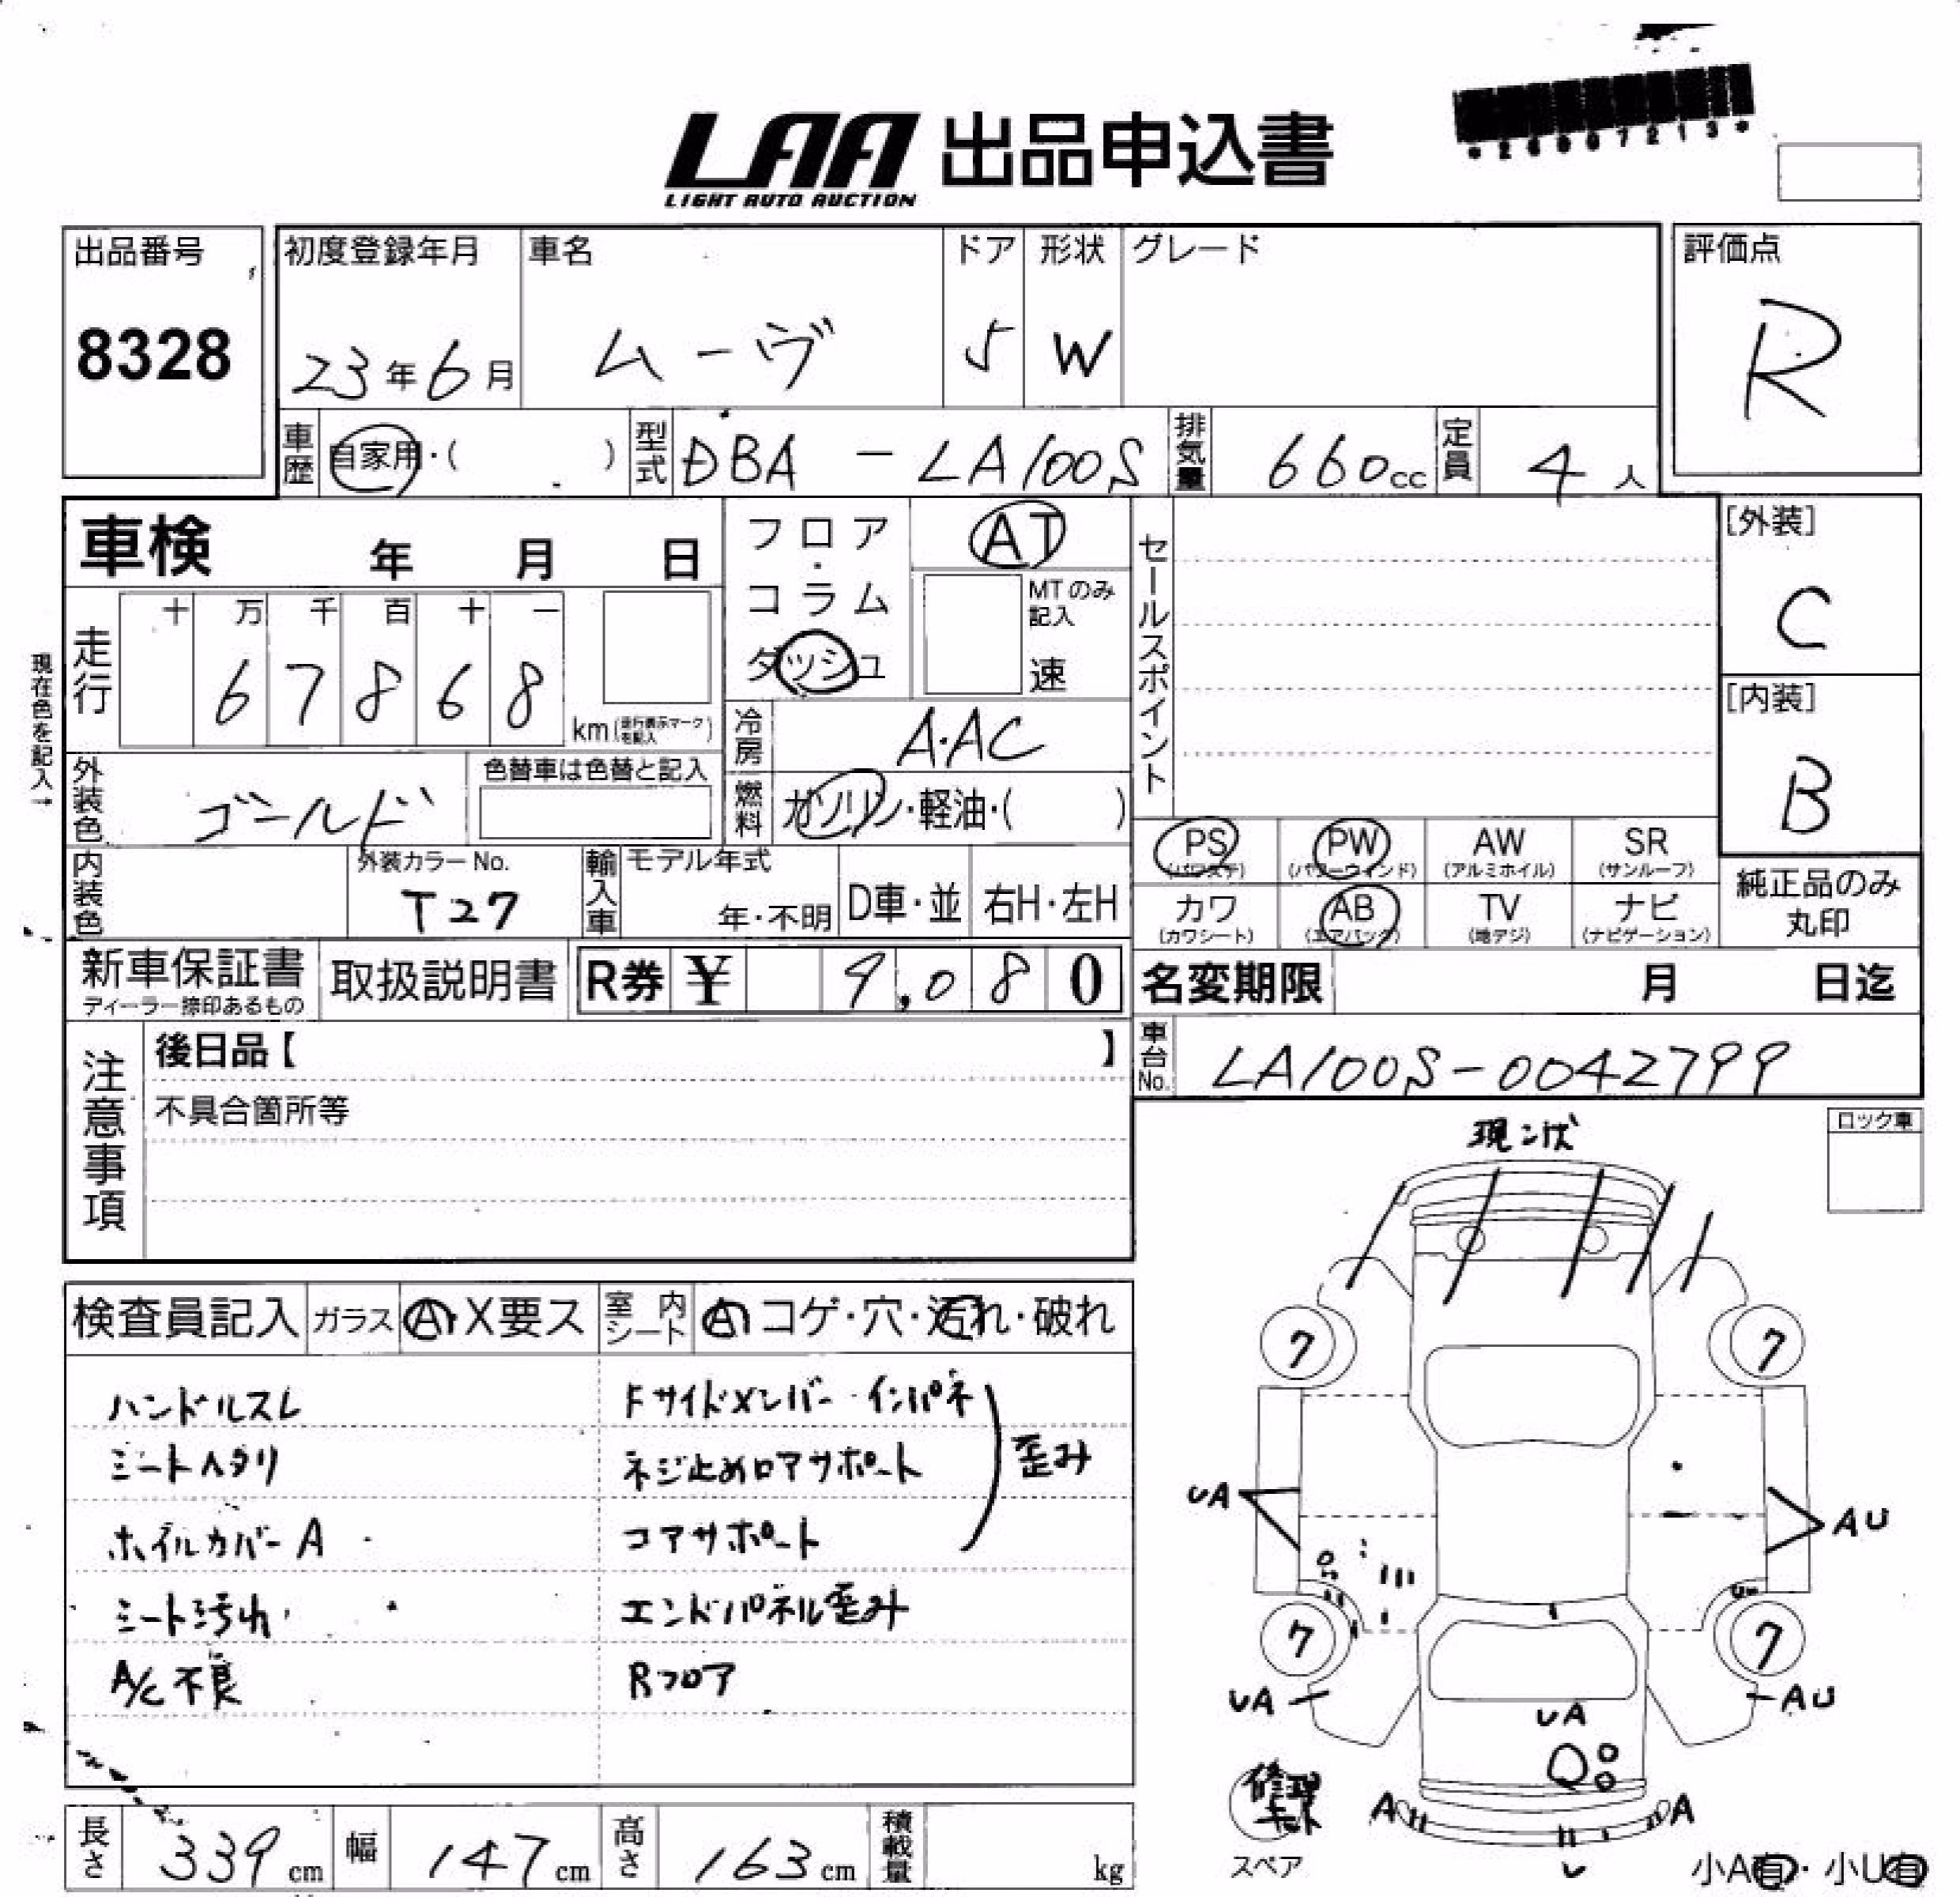 *26007213*
LAA 出品申込書
LIGHT AUTO AUCTION
出品番号
8328
初度登録年月
23年6月
車名
ムーヴ
ドア
5
形状
W
グレード
評価点
R
車歴
自家用・( )
型式
DBA - LA100S
排気量
660cc
定員
4人
車検 年 月 日
フロア・コラム
ダッシュ
AT
MTのみ記入
速
セールスポイント
[外装]
C
[内装]
B
現在色を記入→
走行
十 万 千 百 十 一
6 7 8 6 8
km(走行表示マークを記入)
冷房
A・AC
外装色
ゴールド
色替車は色替と記入
燃料
ガソリン・軽油・( )
内装色
外装カラーNo.
T27
輸入車
モデル年式
年・不明
D車・並
右H・左H
PS
(パワステ)
PW
(パワーウィンド)
AW
(アルミホイル)
SR
(サンルーフ)
カワ
(カワシート)
AB
(エアバック)
TV
(地デジ)
ナビ
(ナビゲーション)
純正品のみ
丸印
新車保証書
ディーラー捺印あるもの
取扱説明書
R券 ¥ 9,080
名変期限 月 日迄
車台No.
LA100S-0042799
注意事項
後日品【 】
不具合箇所等
ロック車
現状
検査員記入
ガラス
A・X要ス
室内シート
A コゲ・穴・汚れ・破れ
ハンドルスレ
シートヘタリ
ホイルカバーA
シート汚れ
A/C不良
Fサイドメンバー・インパネ
ネジ止めロアサポート
コアサポート
歪み
エンドパネル歪み
Rフロア
7
7
UA
AU
7
7
UA
AU
UA
A
A
U
修理キット
スペア
小A有・小U有
長さ
339cm
幅
147cm
高さ
163cm
積載量
kg